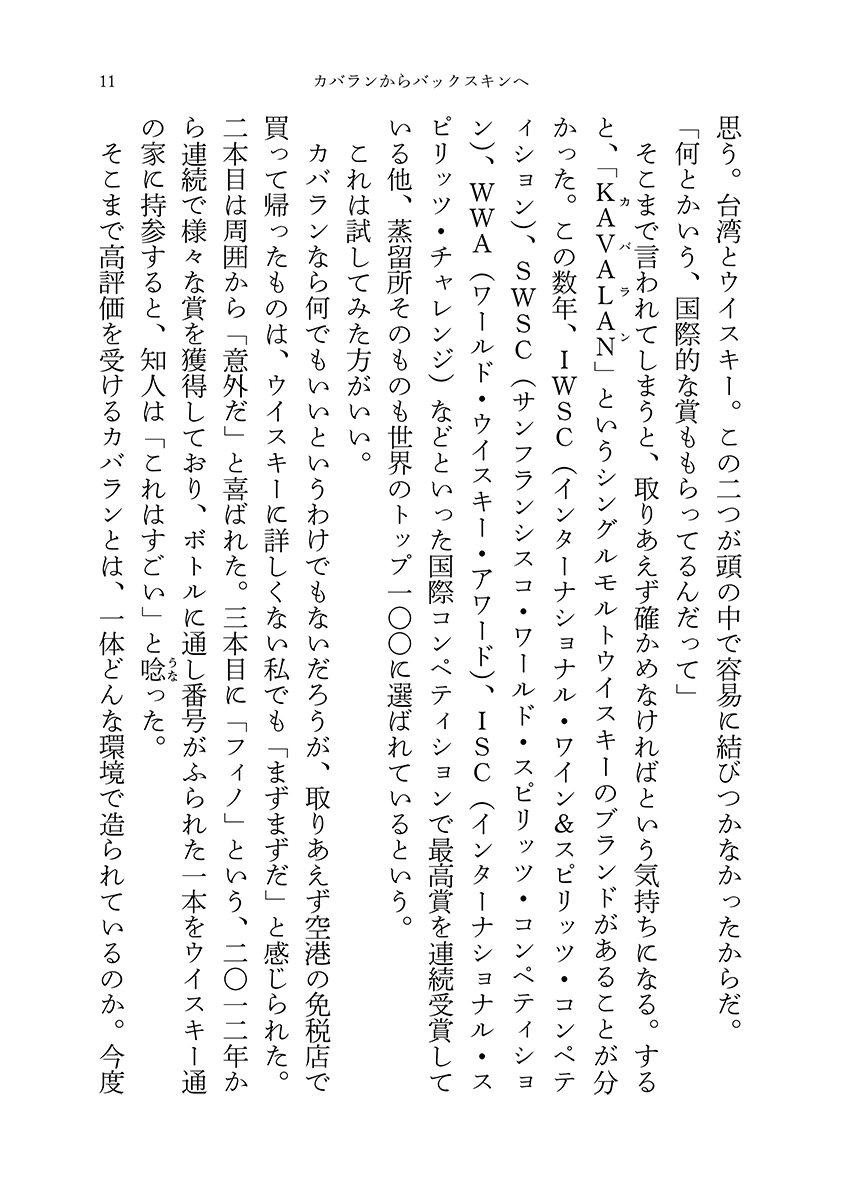 11
カバランからバックスキンへ
思う。台湾とウイスキー。この二つが頭の中で容易に結びつかなかったからだ。
「何とかいう、国際的な賞ももらってるんだって」
そこまで言われてしまうと、取りあえず確かめなければという気持ちになる。する
と、「KAVALAN」というシングルモルトウイスキーのブランドがあることが分
カバラン
かった。この数年、IWSC（インターナショナル・ワイン&スピリッツ・コンペテ
ィション）、SWSC（サンフランシスコ・ワールド・スピリッツ・コンペティショ
ン）、WWA（ワールド・ウイスキー・アワード）、ISC（インターナショナル・ス
ピリッツ・チャレンジ）などといった国際コンペティションで最高賞を連続受賞して
いる他、蒸留所そのものも世界のトップ一〇〇に選ばれているという。
これは試してみた方がいい。
カバランなら何でもいいというわけでもないだろうが、取りあえず空港の免税店で
買って帰ったものは、ウイスキーに詳しくない私でも「まずまずだ」と感じられた。
二本目は周囲から「意外だ」と喜ばれた。三本目に「フィノ」という、二〇一二年か
ら連続で様々な賞を獲得しており、ボトルに通し番号がふられた一本をウイスキー通
の家に持参すると、知人は「これはすごい」と唸った。
うな
そこまで高評価を受けるカバランとは、一体どんな環境で造られているのか。今度